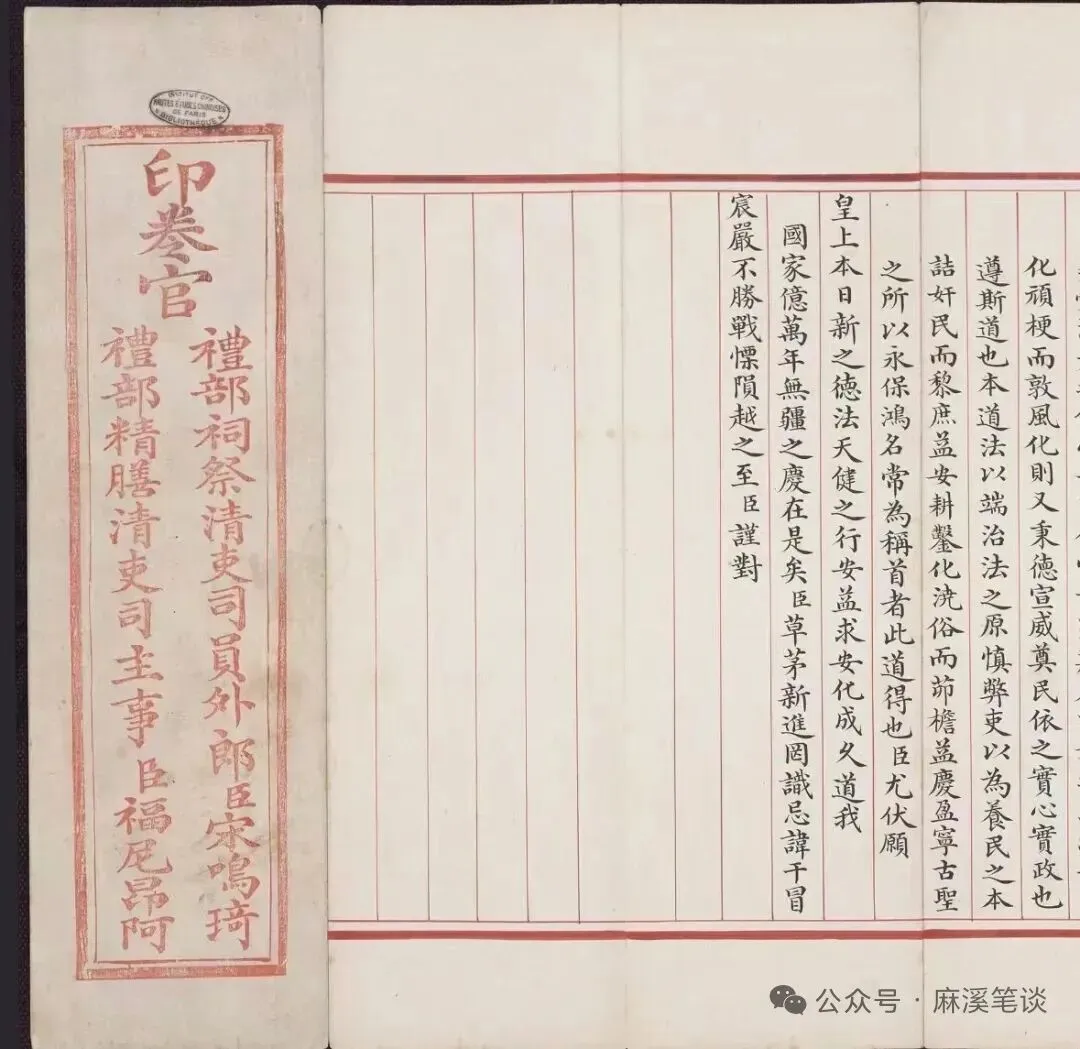 化頑梗而敦風化則又秉德宣威奠民依之實心實政也
遵斯道也本道法以端治法之原慎弊吏以為養民之本
詰奸民而黎庶益安耕鑿化澆俗而茆檐益慶盈寧古聖
之所以永保鴻名常為稱首者此道得也臣尤伏願
皇上本日新之德法天健之行安益求安化成久道我
國家億萬年無疆之慶在是矣臣草茅新進罔識忌諱干冒
宸嚴不勝戰慄隕越之至臣謹對
印卷官
禮部祠祭清吏司員外郎臣宋鳴琦
禮部精膳清吏司主事臣福尼昂阿
INSTITUT DES
HAUTES ETUDES CHINOISES
DE PARIS
BIBLIOTHÈQUE
公众号·麻溪笔谈